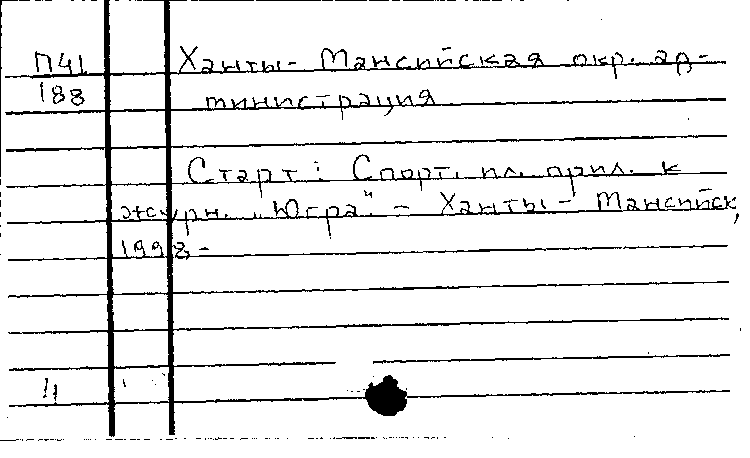 П41 Ханты- Мансийская окр. ад-
188 министрация
Старт: Спорт. ил. прил. к
журн. "Югра" - Ханты- Мансийск,
1998 -